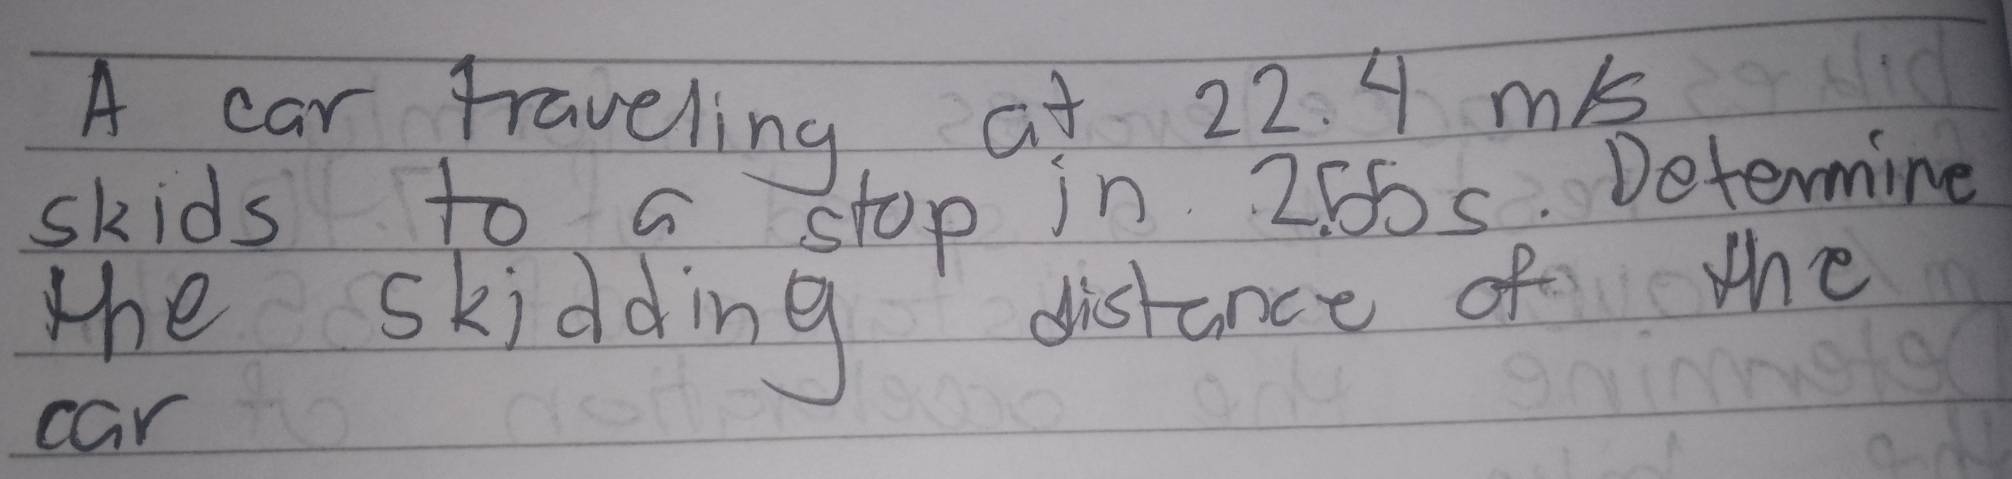 A car traveling at 22.4 m/s
skids to a stop in 2.55 s. Determine
the skidding distance of the
car